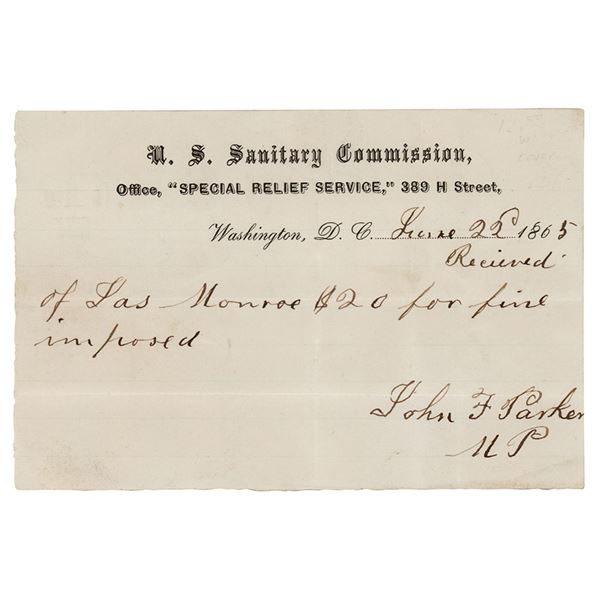 U. S. Sanitary Commission,
Office, "SPECIAL RELIEF SERVICE," 389 H Street,
Washington, D. C. June 22d 1865
Recieved
of Jas Monroe $20 for fine
imposed
John F Parker
M P